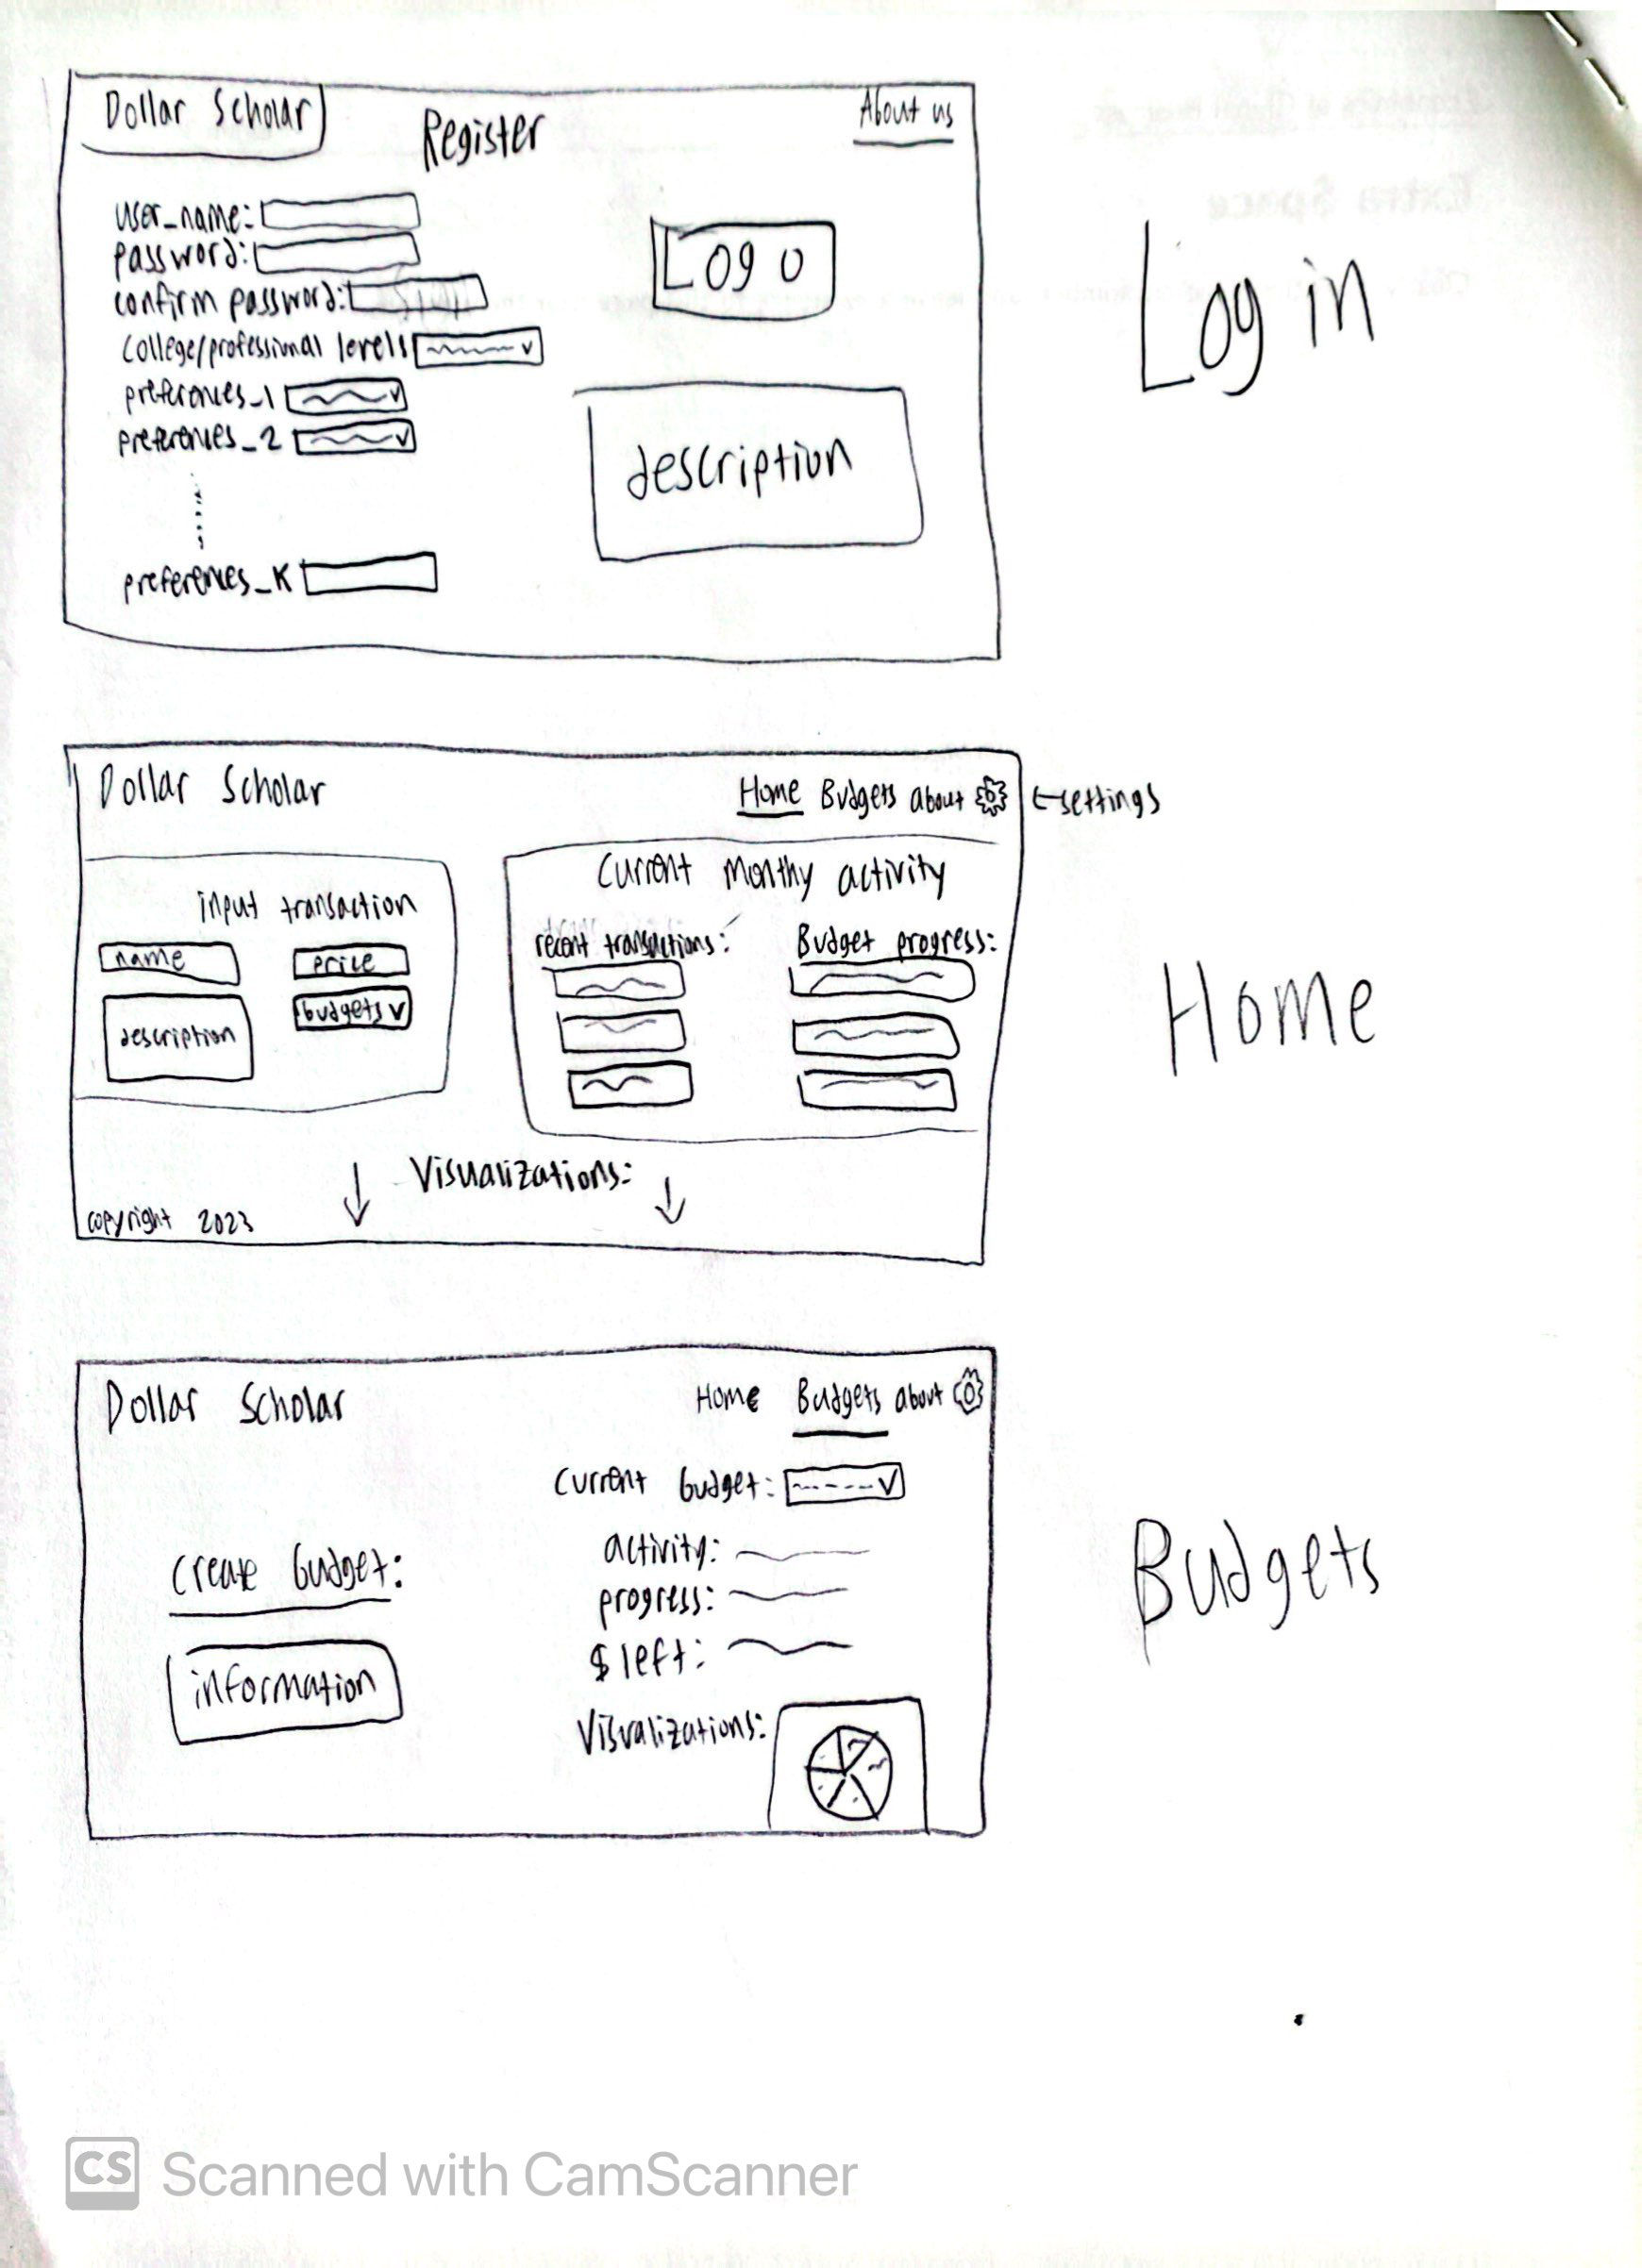 Dollar Scholar
Register
About us
user_name:
password:
confirm password:
College/professional levels
preferences_1
preferences_2
preferences_K
Logo
description
Log in
Dollar Scholar
Home Budgets about
←settings
input transaction
name
price
description
budgets
Current Monthy activity
recent transactions:
Budget progress:
Visualizations:
copyright 2023
Home
Dollar Scholar
Home Budgets about
create budget:
information
Current budget:
activity:
progress:
$ left:
Visualizations:
Budgets
CS Scanned with CamScanner